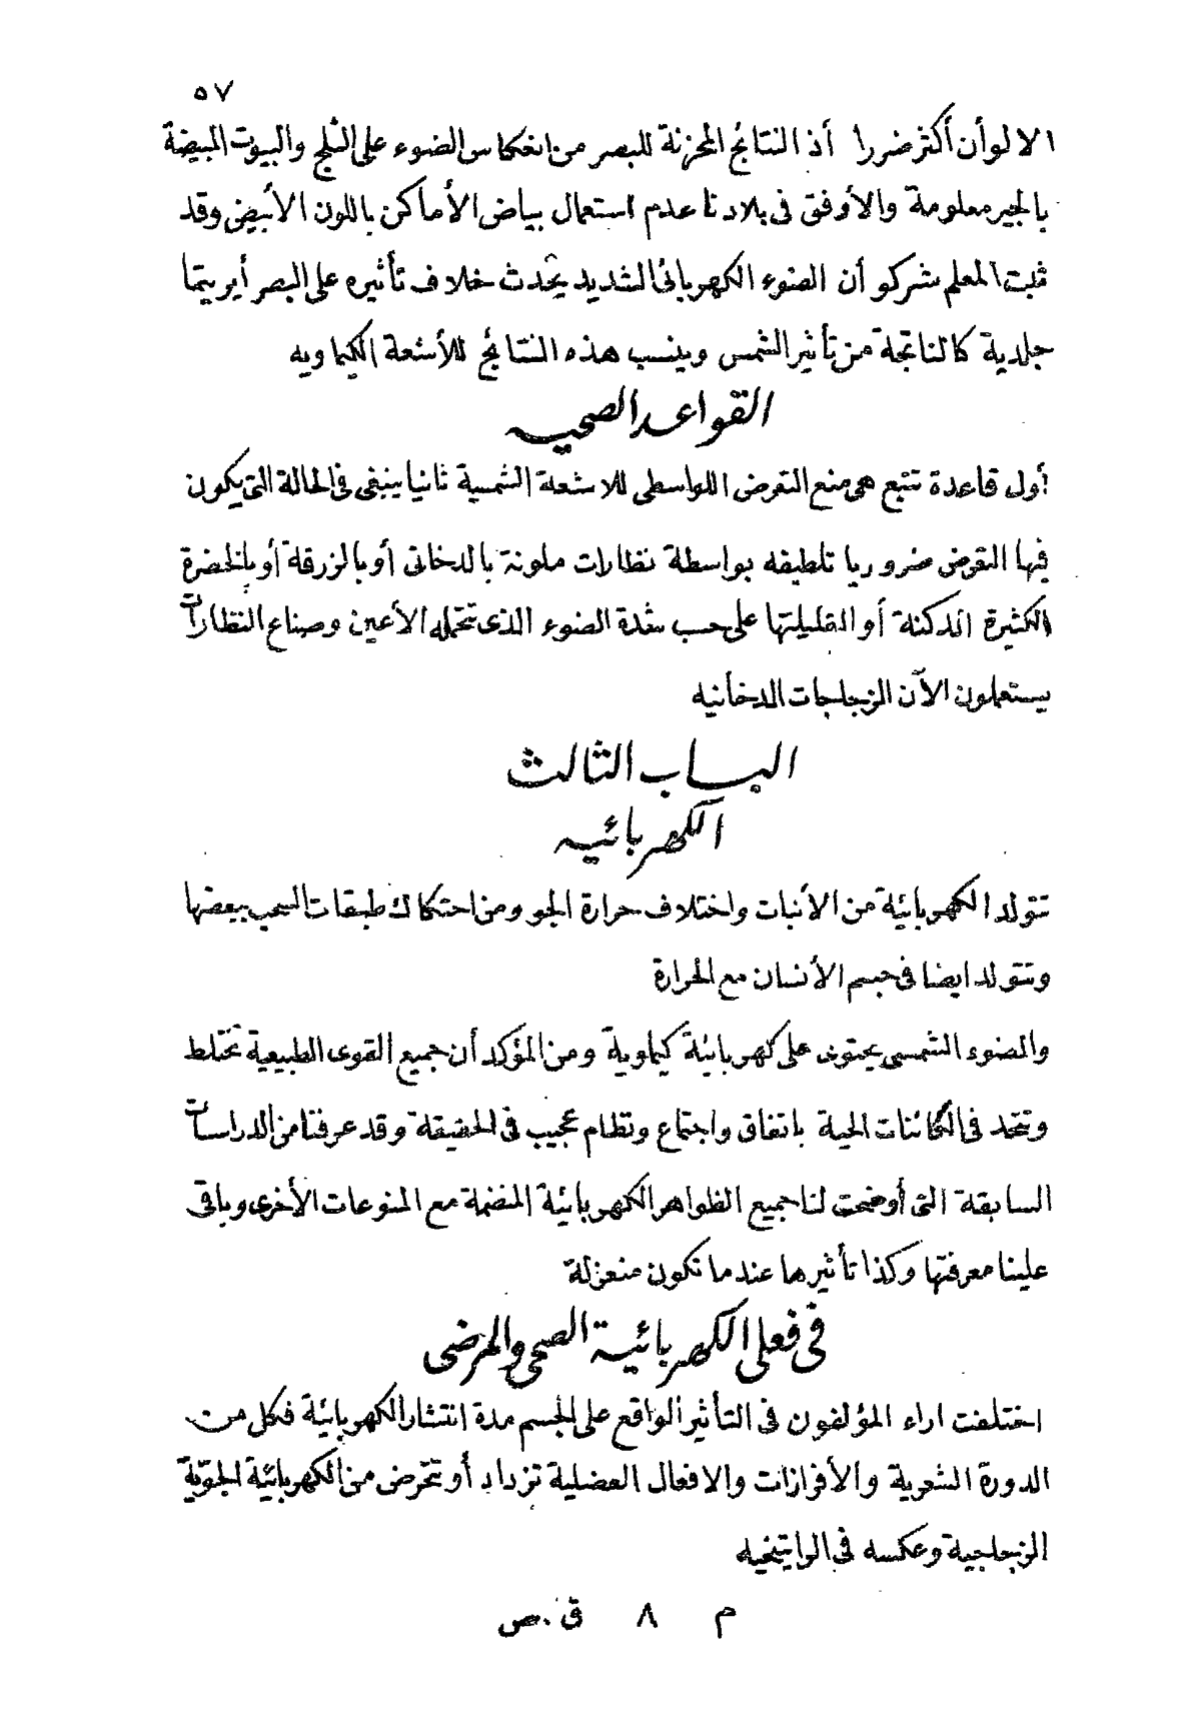 ٥٧
الالوأن أكثر ضررا أذ النتائج المحزنة للبصر من انعكاس الضوء على الثلج والبيوت المبيضة
بالجير معلومة والأوفق فى بلادنا عدم استعمال بياض الأماكن باللون الأبيض وقد
ثبت المعلم شركو أن الضوء الكهربائى الشديد يحدث خلاف تأثيره على البصر أيريتما
جلدية كالناتجة من تأثير الشمس وينسب هذه النتائج للأشعة الكيماويه
القواعد الصحيه
أول قاعدة تتبع هى منع التعرض اللواسطى للاشعة الشمسية ثانيا ينبغى فى الحالة التى يكون
فيها التعرض ضروريا تلطيفه بواسطة نظارات ملونة بالدخانى أو بالزرقة أو بالخضرة
الكثيرة الدكنة أو القليلتها على حسب شدة الضوء الذى تتحمله الأعين وصناع النظارات
يستعملون الآن الزجاجات الدخأنيه
البـاب الثالث
الكهربائيه
تتولد الكهربائية من الأنبات واختلاف حرارة الجو ومن احتكاك طبقات السحب ببعضها
وتتولد ايضا فى جسم الأنسان مع الحرارة
والضوء الشمسى يحتوى على كهربائية كيماوية ومن المؤكد أن جميع القوى الطبيعية تختلط
وتتحد فى الكائنات الحية باتفاق واجتماع ونظام عجيب فى الحقيقة وقد عرفنا من الدراسات
السابقة التى أوضحت لنا جميع الظواهر الكهربائية المنضمة مع المنوعات الأخرى وباقى
علينا معرفتها وكذا تأثيرها عندما تكون منعزلة
فى فعلى الكهربائية الصحى والمرضى
اختلفت اراء المؤلفون فى التأثير ألواقع على الجسم مدة انتشار الكهربائية فكل من
الدورة الشعرية والأفرازات والافعال العضلية تزداد أو تتحرض من الكهربائية الجوّية
الزجاجية وعكسه فى الراتينجيه
م ٨ ق . ص